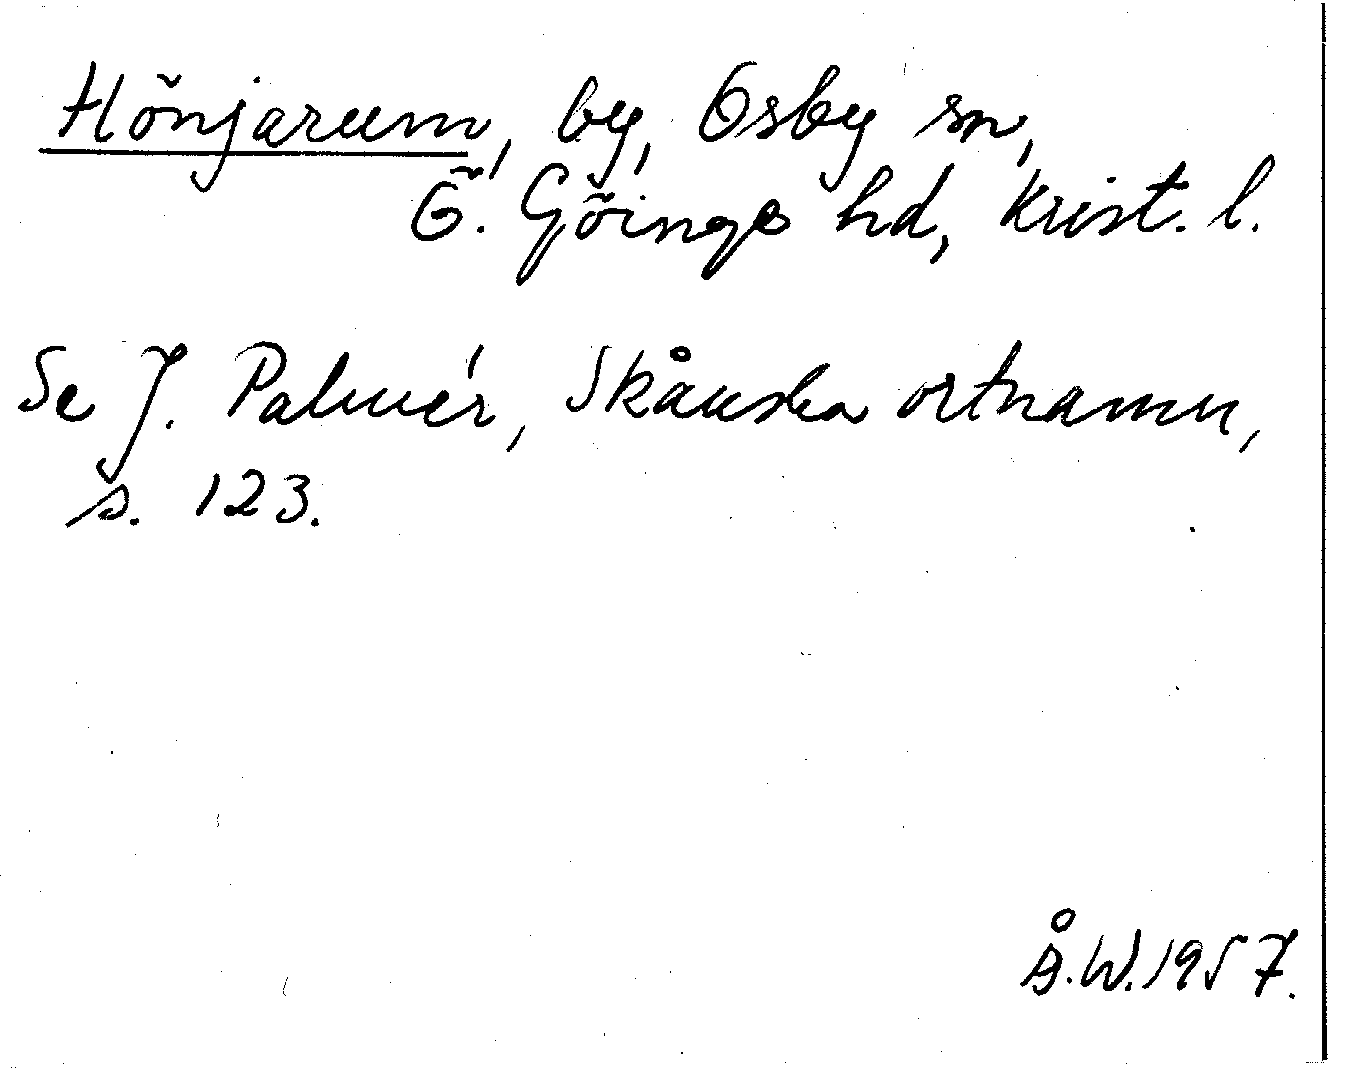 Hönjarum, by, Osby sn,
Ö. Göinge hd, Krist. l.
Se J. Palmér, Skånska ortnamn,
s. 123.
Å.W.1957.